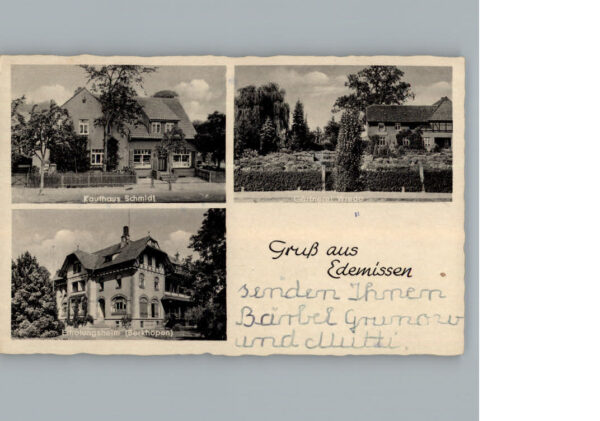 Kaufhaus Schmidt
Gärtnerei Wrede
Erholungsheim (Berkhöpen)
Gruß aus
Edemissen
senden Ihnen
Bärbel Grunow
und Mutti.